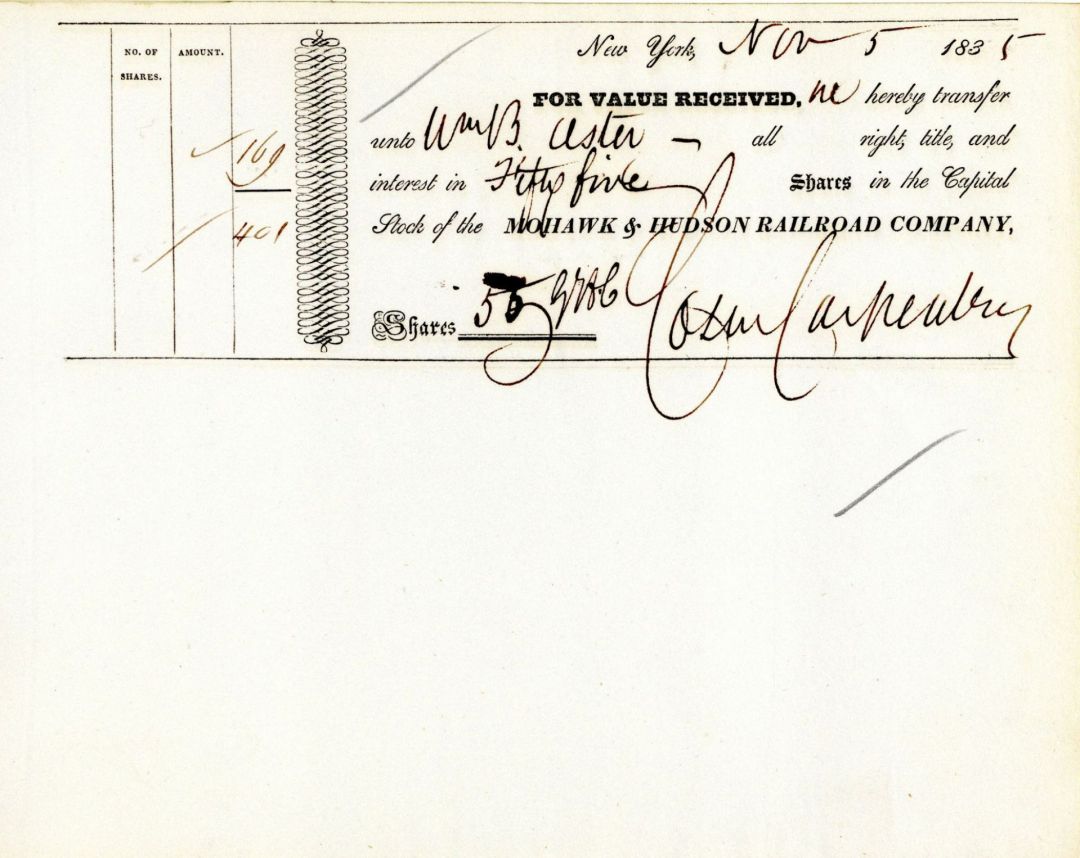 NO. OF SHARES.
AMOUNT.
169
401
New York, Nov 5 1835
FOR VALUE RECEIVED, we hereby transfer
unto Wm B. Astor — all right, title, and
interest in Fifty five Shares in the Capital
Stock of the MOHAWK & HUDSON RAILROAD COMPANY,
Shares 55
Carpenter